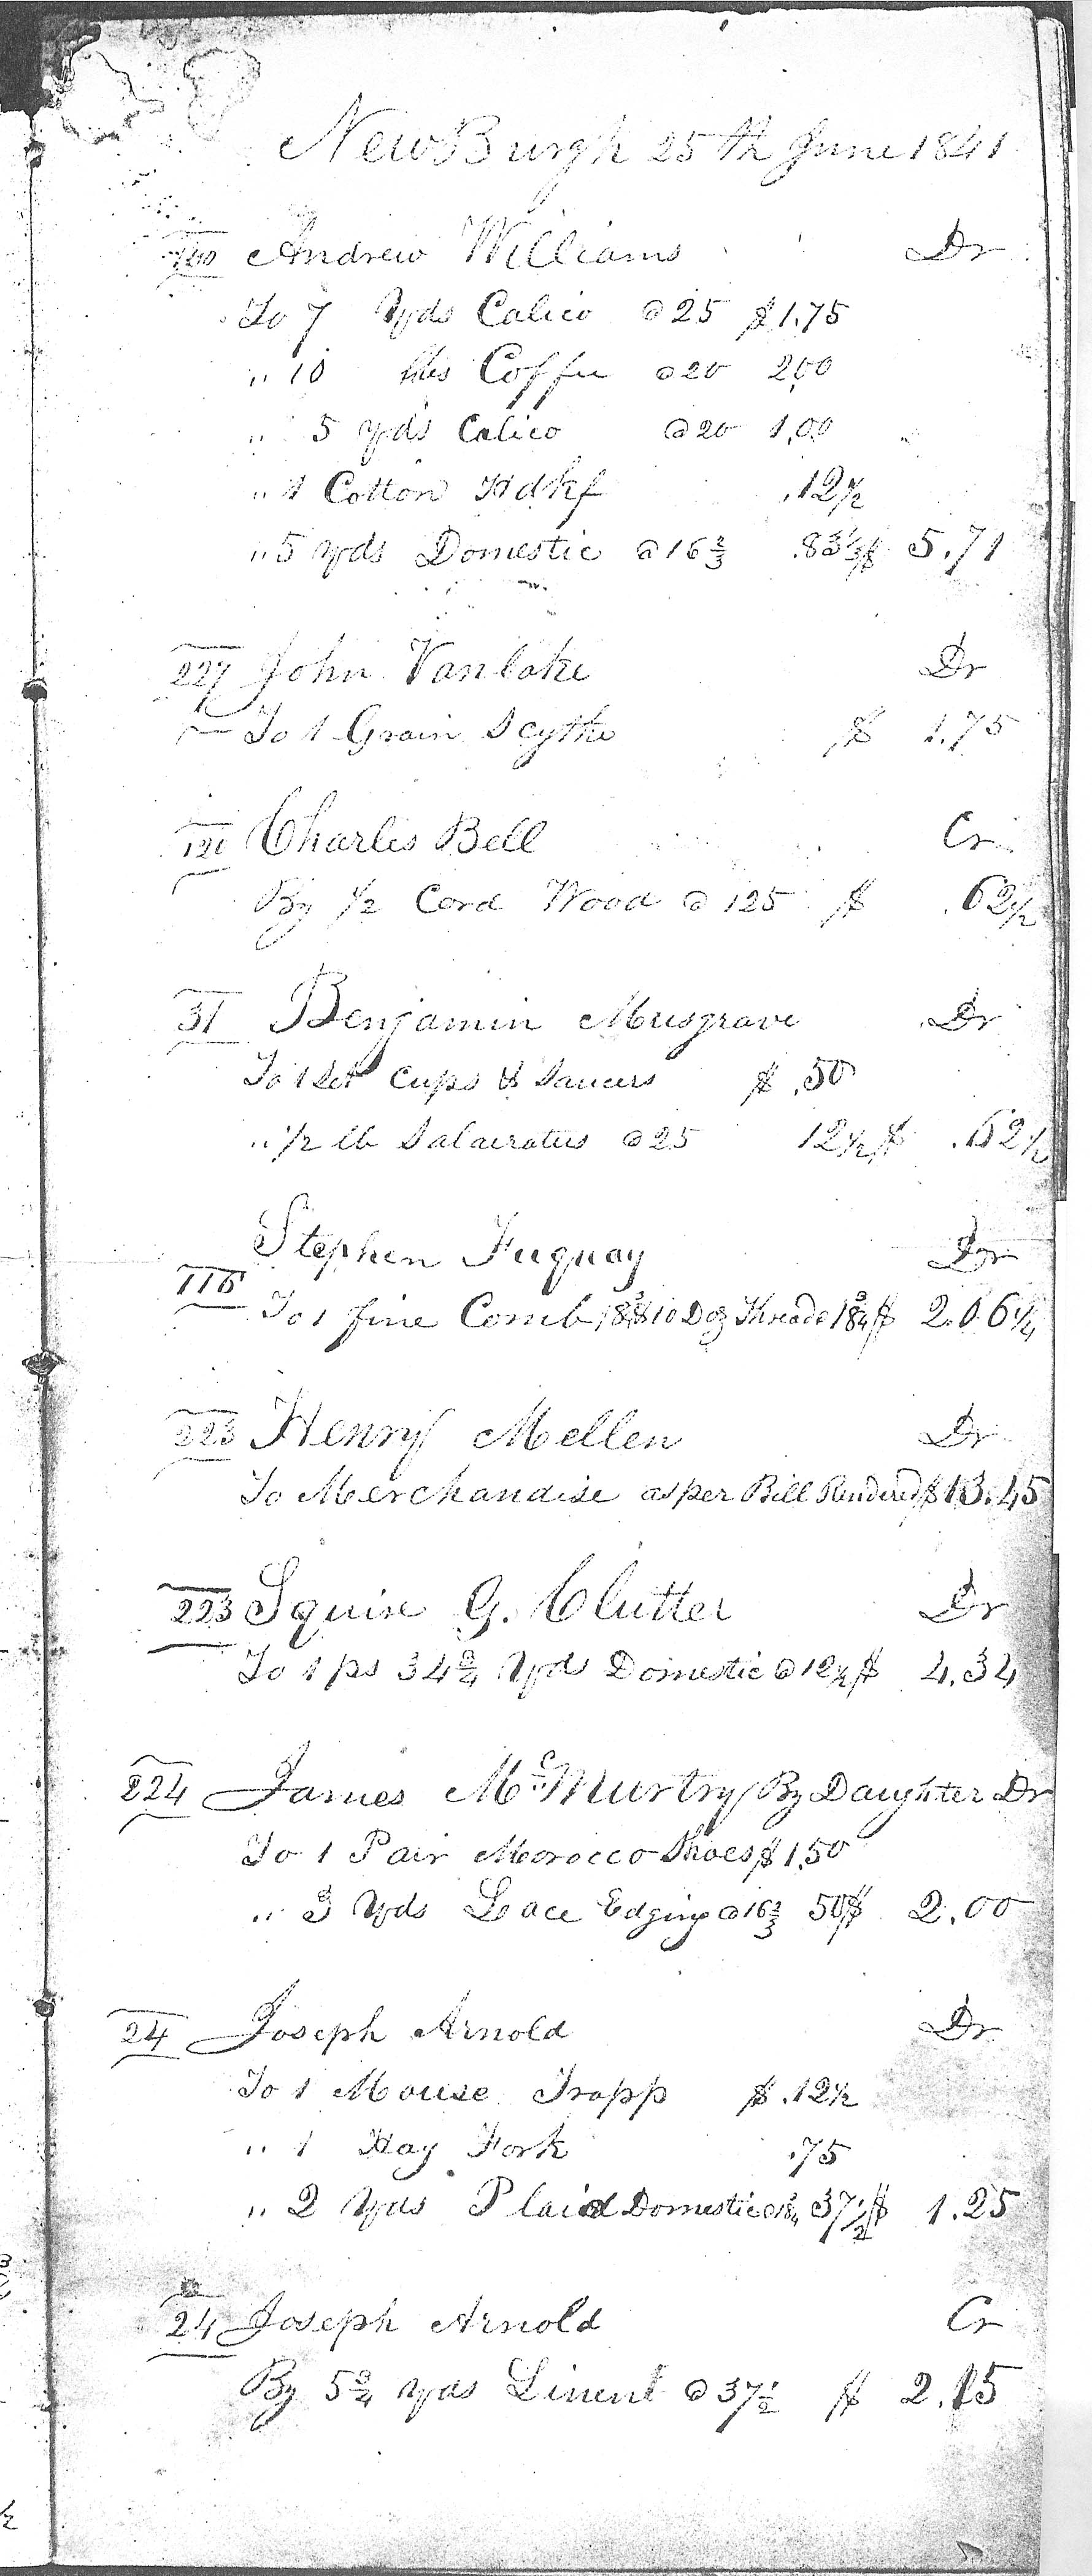 NewBurgh 25th June 1841
140 Andrew Williams Dr
To 7 Yds Calico @ 25 $1.75
" 10 lbs Coffee @ 20 2.00
" 5 yds Calico @ 20 1.00
" 1 Cotton Hdkf .12½
" 5 yds Domestic @ 16⅔ .83⅓ $ 5.71
227 John Vanlake Dr
To 1 Grain Scythe $ 1.75
120 Charles Bell Cr
By ½ Cord Wood @ 125 $ .62½
31 Benjamin Musgrave Dr
To 1 Set Cups & Saucers $ .50
" ½ lb Salaeratus @ 25 12½ $ .62½
Stephen Fuquay Dr
116
To 1 fine Comb 18¾ & 10 Doz Threads 18¾ $ 2.06¼
223 Henry Mellen Dr
To Merchandise as per Bill Rendered $13.45
223 Squire G. Clutter Dr
To 1 ps 34¾ Yds Domestic @ 12½ $ 4.34
224 James McMurtry By Daughter Dr
To 1 Pair Morocco Shoes $1.50
" 3 Yds Lace Edging @ 16⅔ 50 $ 2.00
24 Joseph Arnold Dr
To 1 Mouse Trapp $ .12½
" 1 Hay Fork .75
" 2 Yds Plaid Domestic @ 18¾ 37½ $ 1.25
24 Joseph Arnold Cr
By 5¾ yds Linent @ 37½ $ 2.15